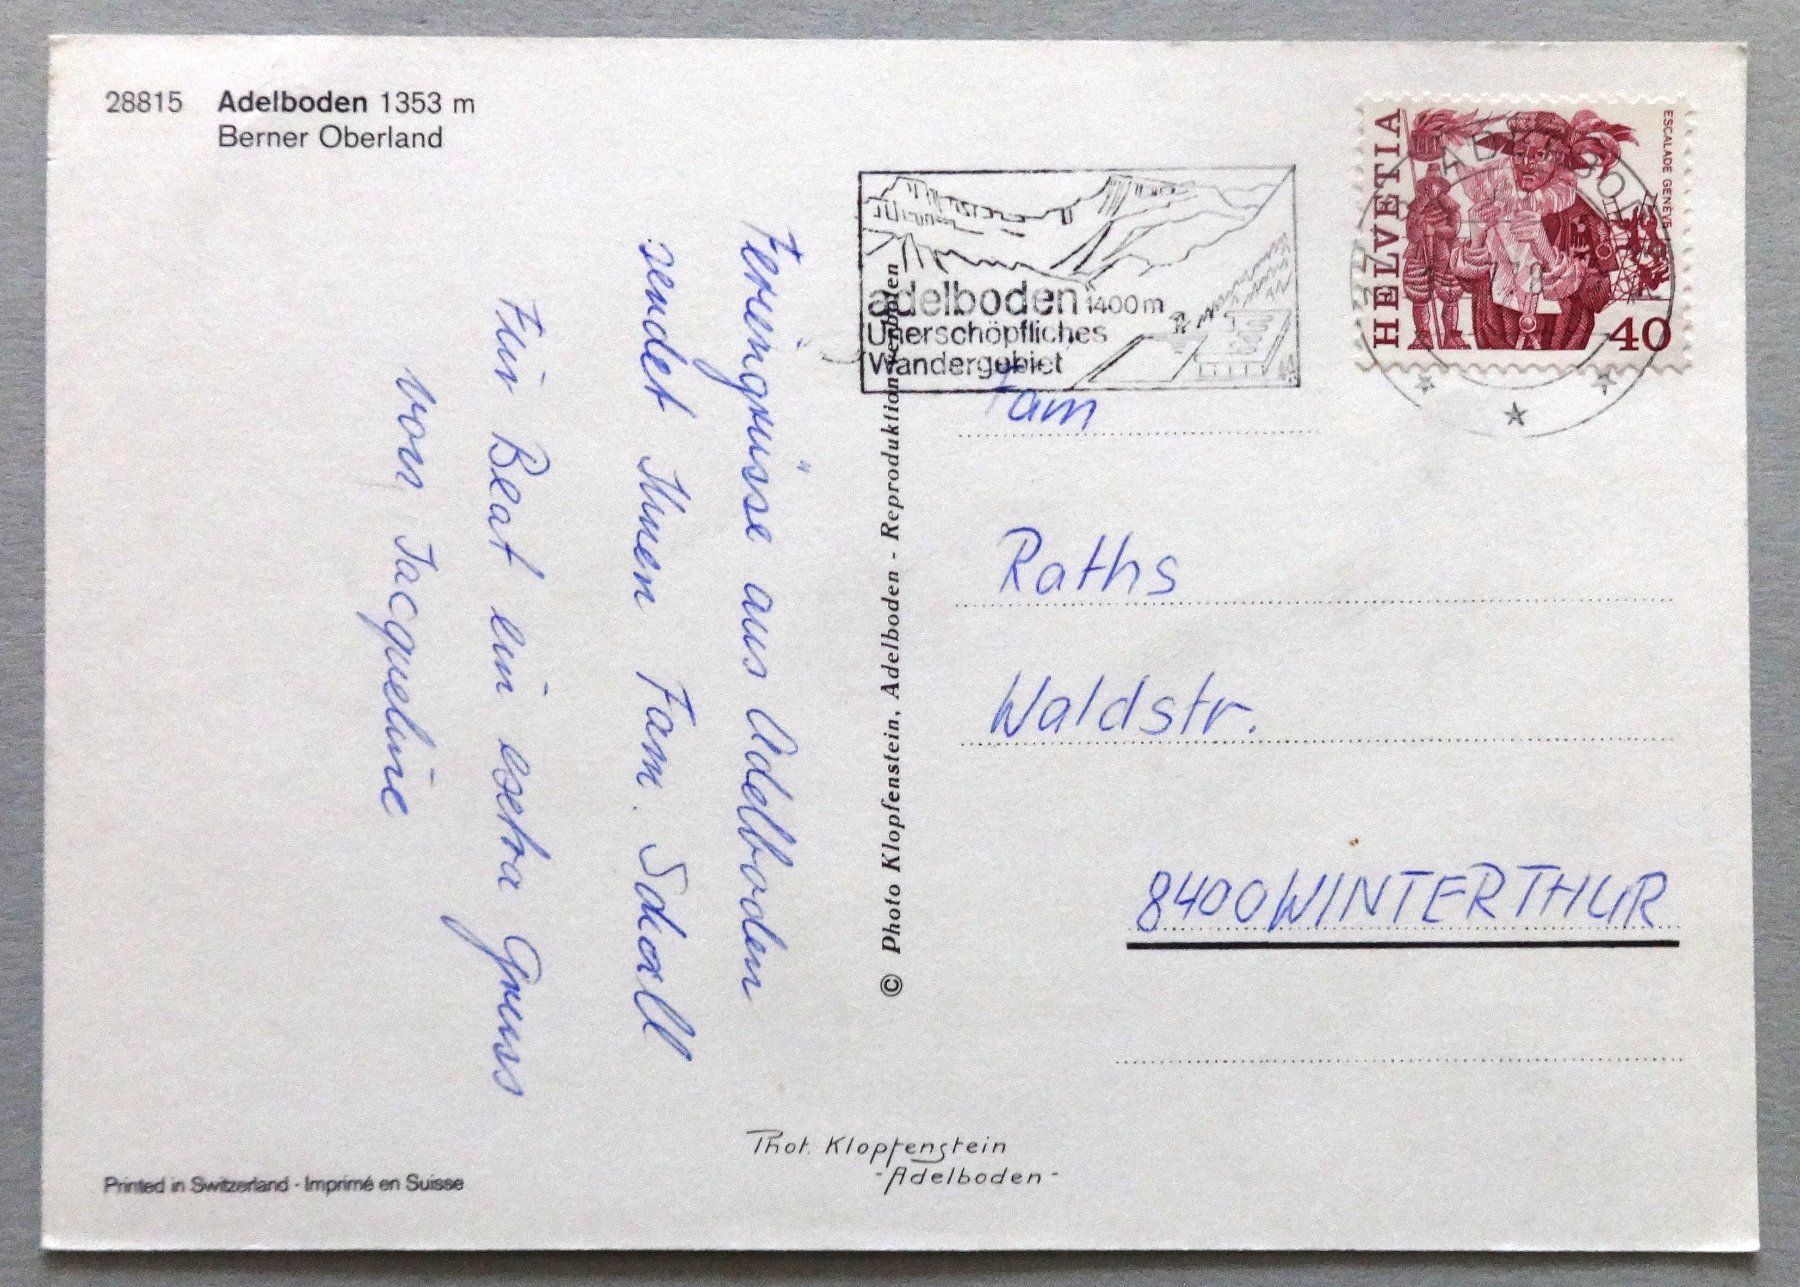 28815 Adelboden 1353 m
Berner Oberland
Feriengrüsse aus Adelboden
sendet Ihnen Fam. Schall
Für Beat ein extra Gruss
von Jacqueline
© Photo Klopfenstein, Adelboden - Reproduktion verboten
adelboden 1400 m
Unerschöpfliches
Wandergebiet
HELVETIA
ESCALADE GENÈVE
40
ADELBODEN
Fam
Raths
Waldstr.
8400 WINTERTHUR
Phot. Klopfenstein
- Adelboden -
Printed in Switzerland - Imprimé en Suisse